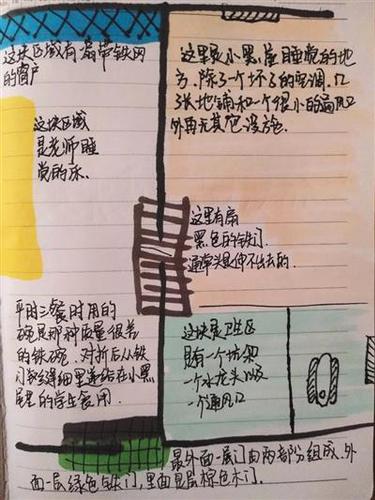 这块区域有扇带铁网
的窗户
这块区域
是老师睡
觉的床.
这里是小黑屋睡觉的地
方.除了一个坏了的空调.几
张地铺和一个很小的通风口
外再无其它设施.
这里有扇
黑色的铁门.
通常头是伸不出去的.
平时三餐时用的
碗是那种质量很差
的铁碗.对折后从铁
门缝细里递给在小黑
屋里的学生食用.
这块是卫生区
只有一个坑架
一个水龙头以及
一个通风口
最外面一层门由两部分组成.外
面一层绿色铁门,里面是层棕色木门.